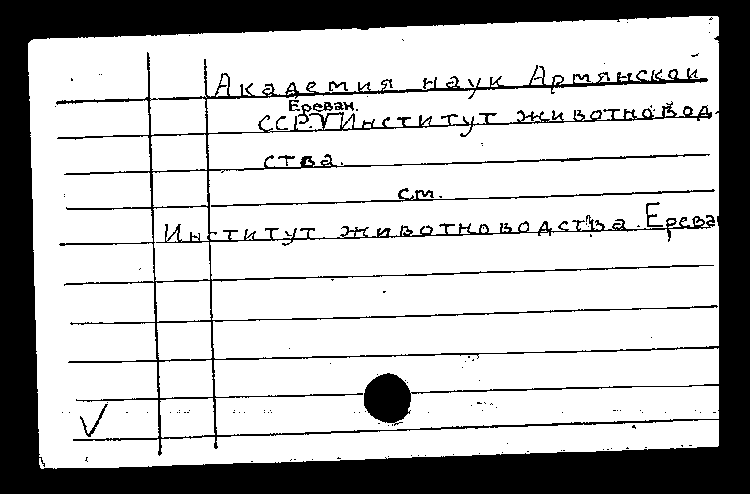 Академия наук Армянской
Ереван.
ССР. V Институт животновод-
ства.
см.
Институт животноводства. Ереван
V